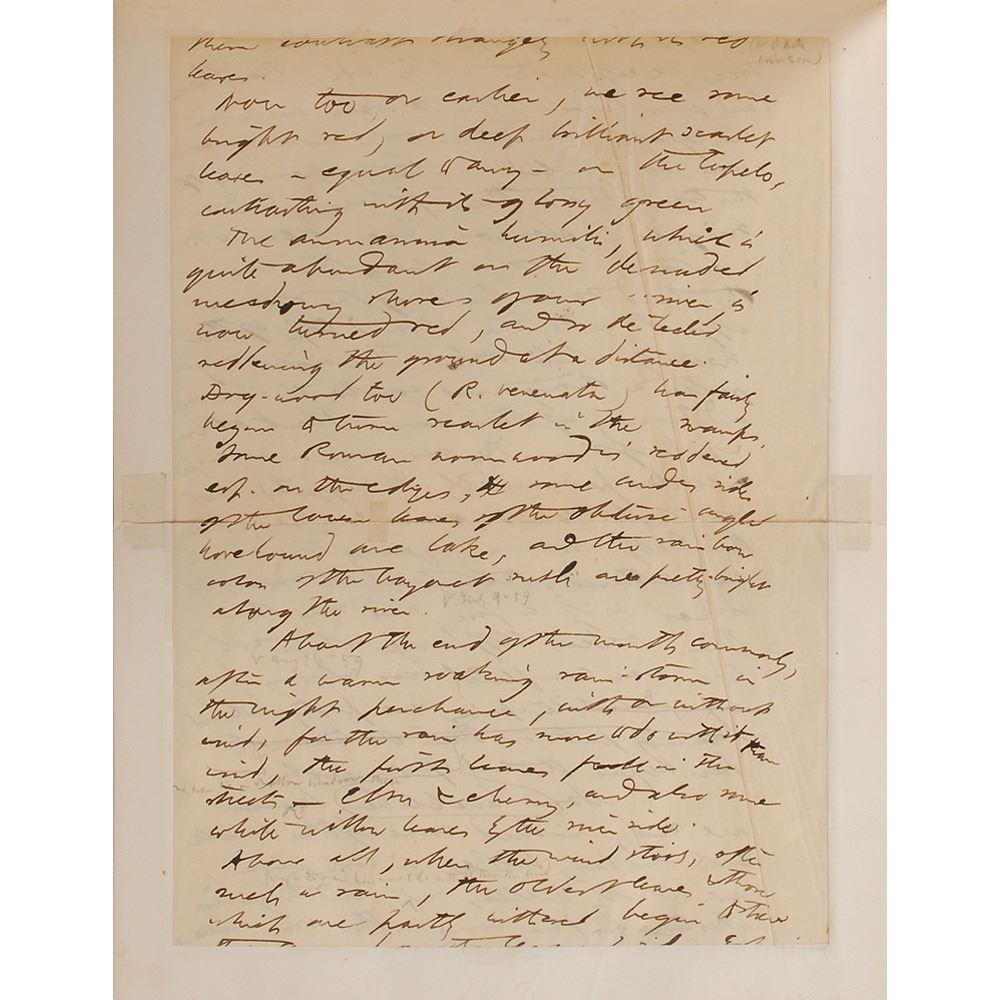 them contrast strangely with its red
leaves.
Now too, or earlier, we see some
bright red, or deep brilliant scarlet
leaves – equal to any – on the tupelo,
contrasting with its glossy green
The ammannia humilis, which is
quite abundant on the denuded
meadowy shores of our river, is
now turned red, and so detected
reddening the ground at a distance.
Dog-wood too (R. venenata) has fairly
begun to turn scarlet in the swamps.
Some Roman wormwood is reddened
esp. on the edges, some under sides
of the lower leaves of the obtuse angled
horehound are lake, and the rainbow
colors of the bayonet rush are pretty bright
along the river.
V 9-59
About the end of the month commonly,
V aug 59
after a warm soaking rain-storm in
the night perchance, with or without
wind, for the rain has more to do with it than
wind, the first leaves fall in the
streets – Elm & cherry, and also some
white willow leaves by the river side.
Above all, when the wind stirs, after
such a rain, the oldest leaves & those
which are partly withered begin to